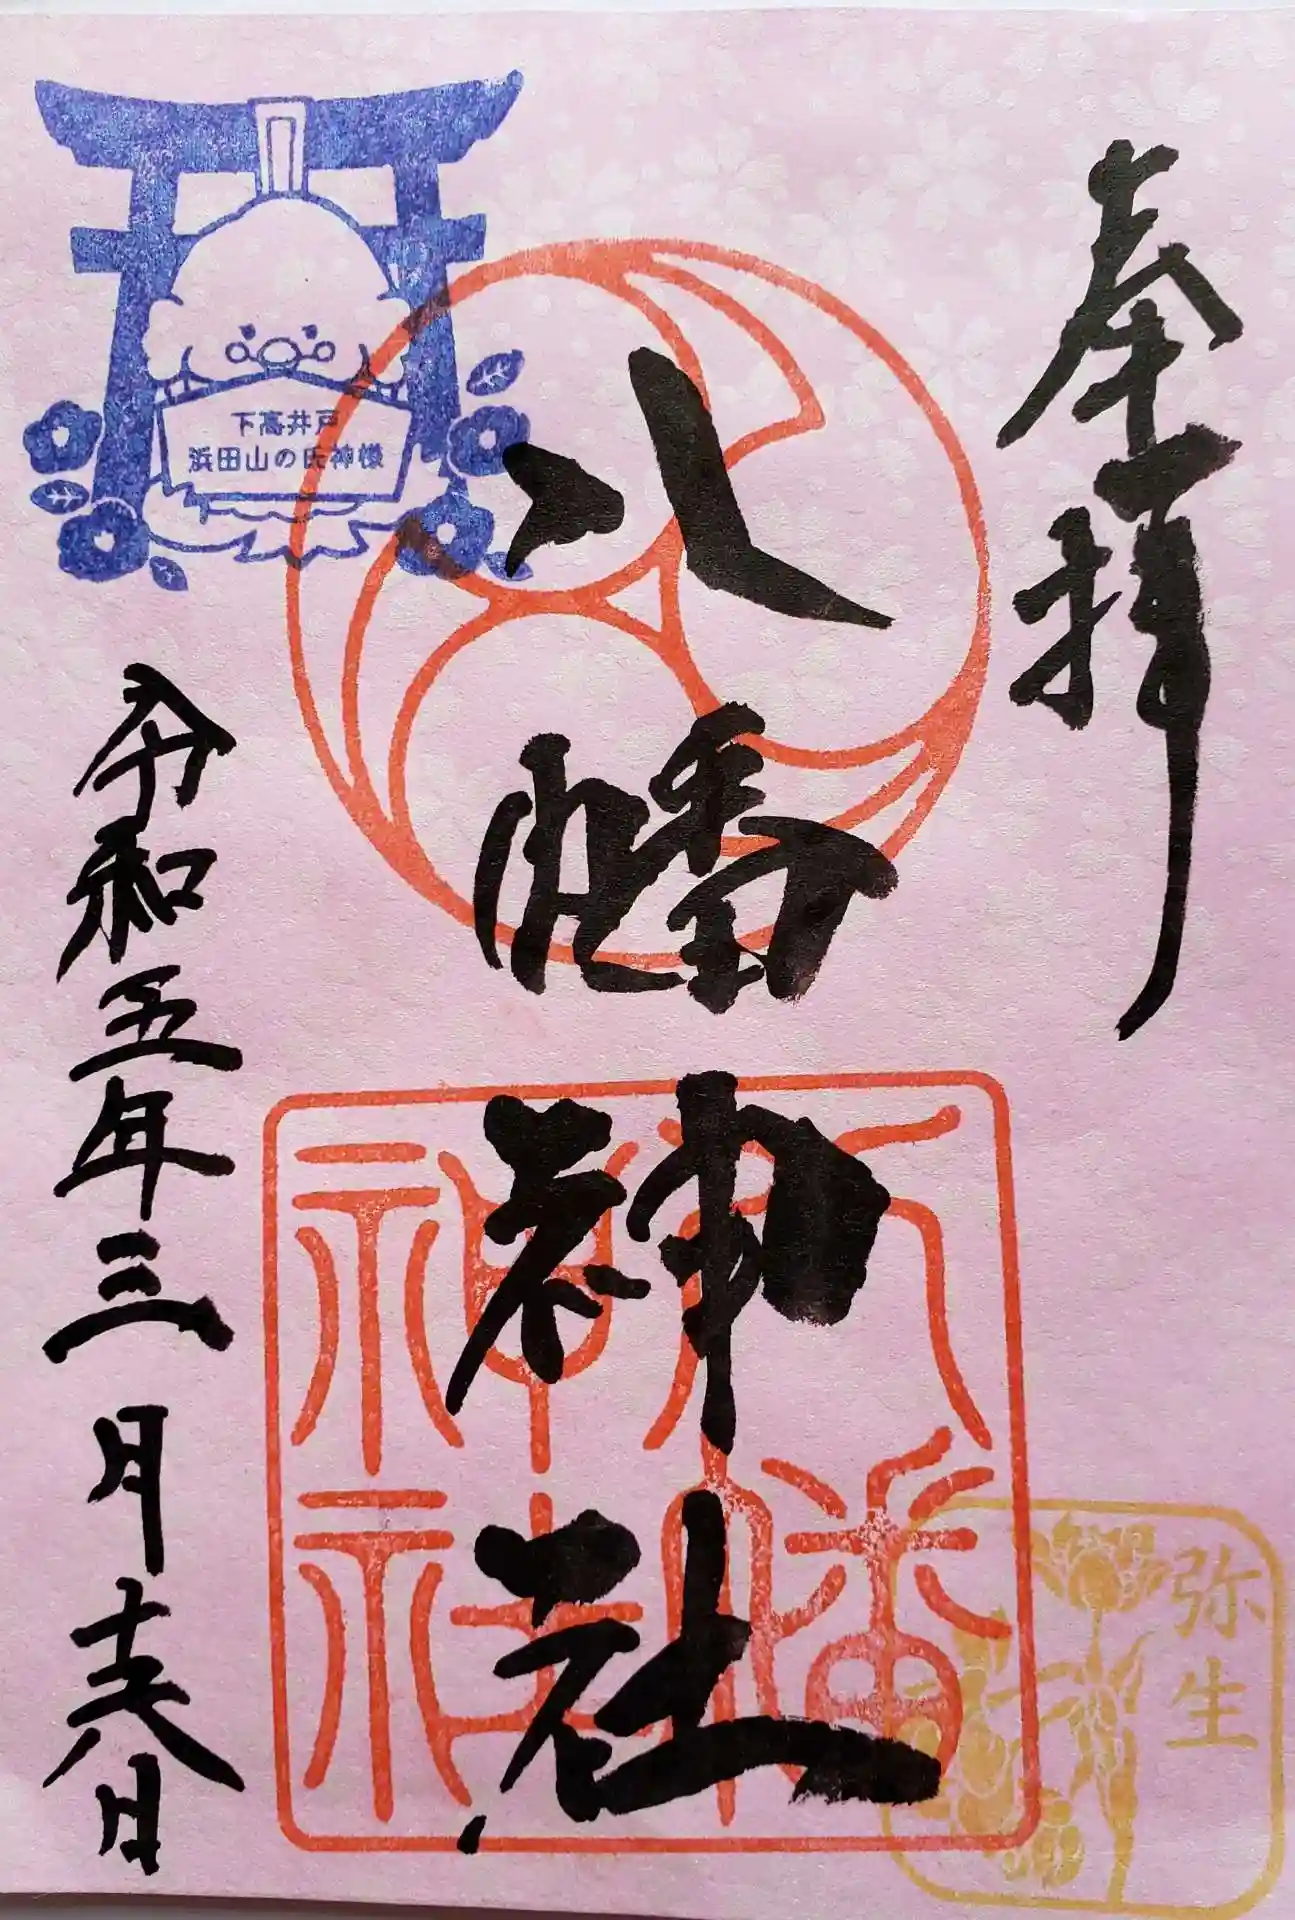 奉拝
八幡神社
令和五年三月十六日
下高井戸
浜田山の氏神様
八幡
神社
弥生